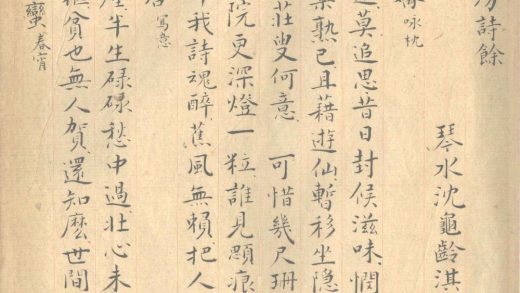 詩餘
琴水沈龜齡淇
詠枕
莫追思昔日封候滋味惘
熟已且藉遊仙暫移坐隐
莊叟何意 可惜幾尺珊
院更深燈一粒誰見顋痕
我詩魂醉蕉風無賴把人
寫意
半生碌碌愁中過壯心未
貧也無人賀還知麼世間
蠻 春宵